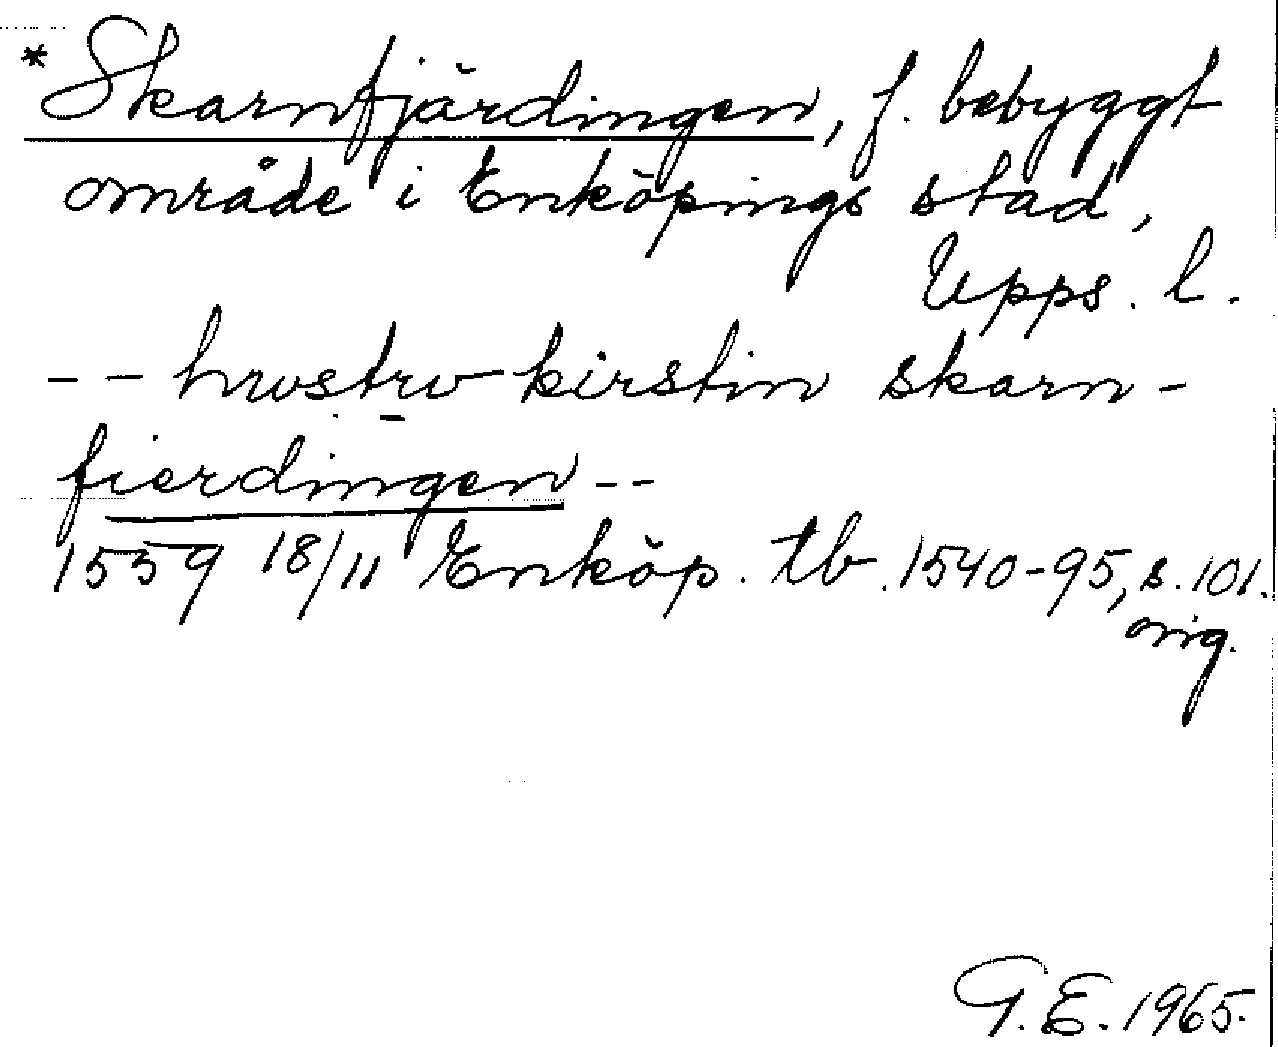 * Skarnfjärdingen, f. bebyggt
område i Enköpings stad,
Upps. l.
-- hvstrv kirstin skarn-
fierdingen --
1559 18/11 Enköp. tb. 1540-95, s. 101.
orig.
G.E. 1965.